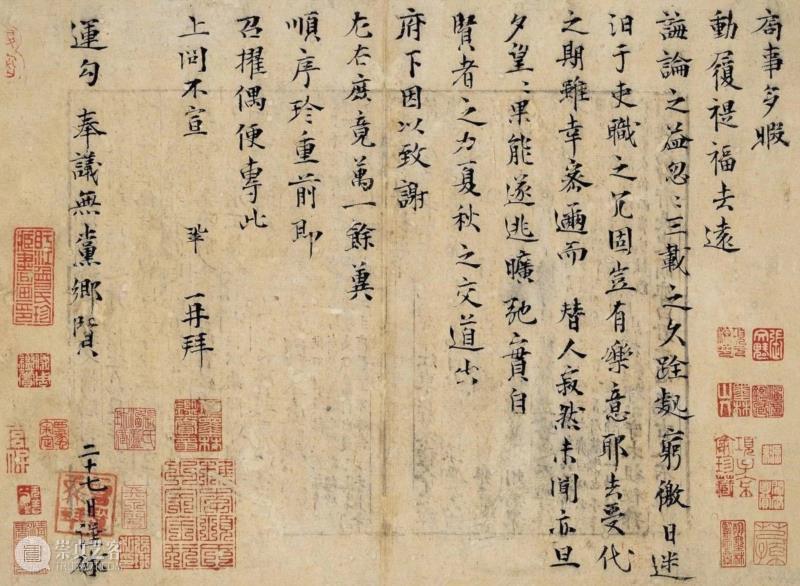 局事多暇
動履禔福去遠
誨論之益忽〻三載之久跧處窮徼日迷
汩于吏職之冗固豈有樂意耶去受代
之期雖幸密邇而 替人寂然未聞亦旦
夕望〻果能遂逃曠弛實自
賢者之力夏秋之交道出
府下因以致謝
左右庶竟萬一餘冀
順序珍重前即
召擢偶便專此
上問不宣 鞏 再拜
運勾 奉議無黨鄉賢 二十七日謹啟
崇真艺客